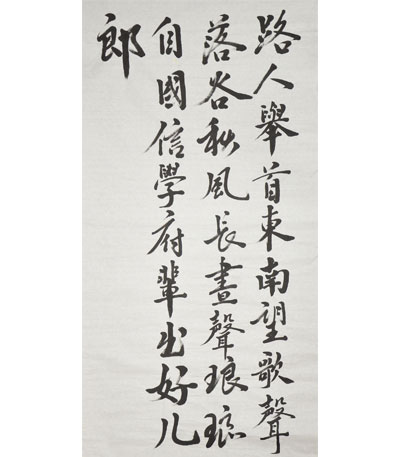 路人舉首東南望歌聲
落谷秋風長書聲琅琅
自國信學府輩出好儿
郎